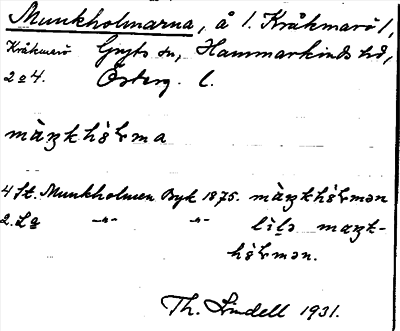 Munkholmarna, å 1. Kråkmarö 1,
Kråkmarö Gryts sn, Hammarkinds hd,
2 o 4. Österg. l.
màŋkhòlma
4 St. Munkholmen Byk 1875. màŋkhòlmən
2. La -"- -"- lìlə maŋk-
hòlmən.
Th. Lindell 1931.